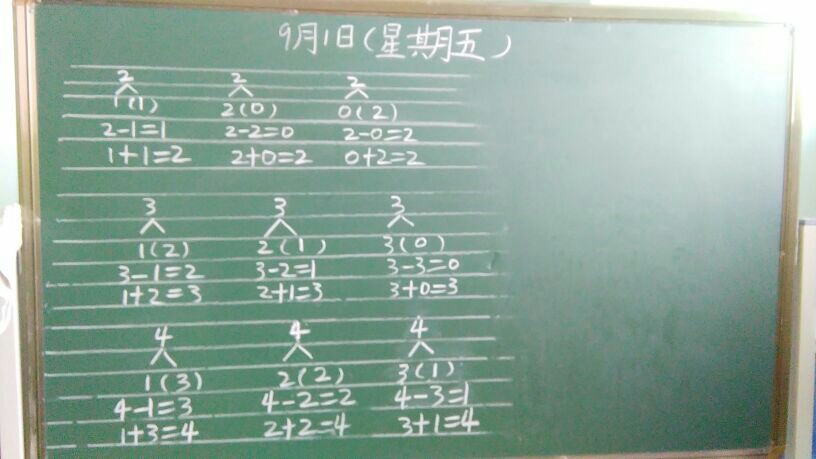 9月1日(星期五)
2 2 2
1(1) 2(0) 0(2)
2-1=1 2-2=0 2-0=2
1+1=2 2+0=2 0+2=2
3 3 3
1(2) 2(1) 3(0)
3-1=2 3-2=1 3-3=0
1+2=3 2+1=3 3+0=3
4 4 4
1(3) 2(2) 3(1)
4-1=3 4-2=2 4-3=1
1+3=4 2+2=4 3+1=4